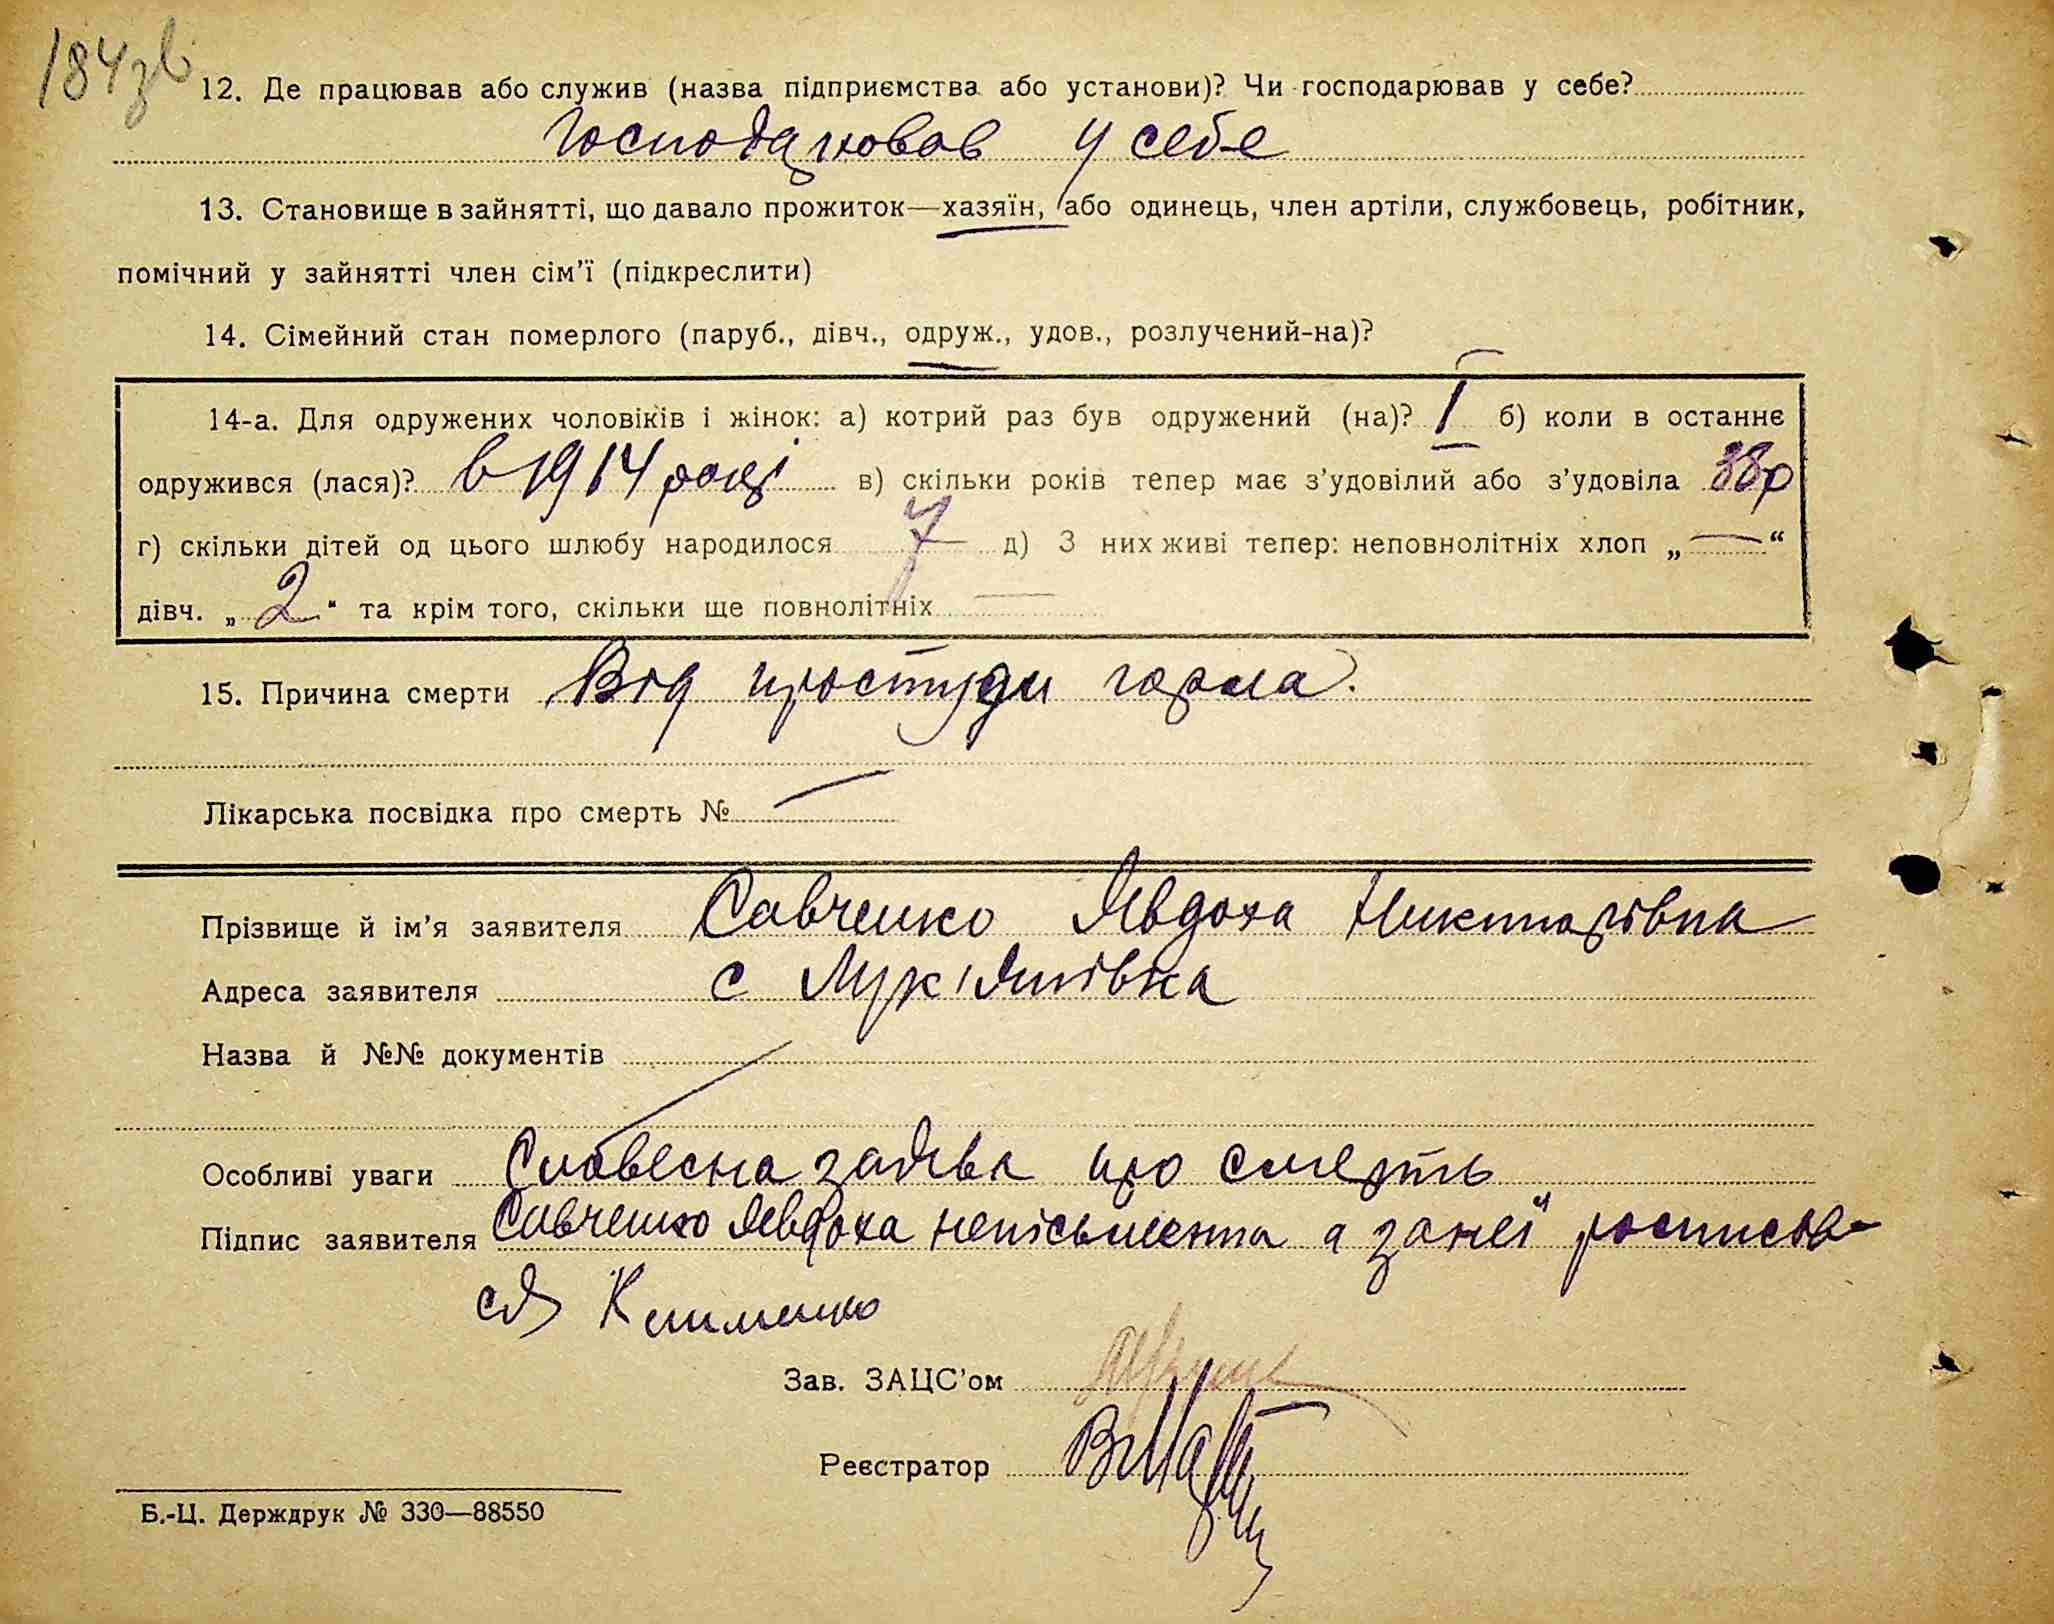 184зв
12. Де працював або служив (назва підприємства або установи)? Чи господарював у себе?
Господарював у себе
13. Становище в зайнятті, що давало прожиток—хазяїн, або одинець, член артіли, службовець, робітник,
помічний у зайнятті член сім'ї (підкреслити)
14. Сімейний стан померлого (паруб., дівч., одруж., удов., розлучений-на)?
14-а. Для одружених чоловіків і жінок: а) котрий раз був одружений (на)? I б) коли в останнє
одружився (лася)? в 1914 році в) скільки років тепер має з'удовілий або з'удовіла 38р
г) скільки дітей од цього шлюбу народилося 7 д) З них живі тепер: неповнолітніх хлоп „—“
дівч. „2“ та крім того, скільки ще повнолітніх —
15. Причина смерти Від простуди горла.
Лікарська посвідка про смерть № —
Прізвище й ім'я заявителя Савченко Явдоха Никторівна
Адреса заявителя с Лук'янівка
Назва й №№ документів
Особливі уваги Словесна заява про смерть
Підпис заявителя Савченко Явдоха непісьменна а занеї росписва-
ся Клименко
Зав. ЗАЦС'ом
Реєстратор
Б.-Ц. Держдрук № 330—88550